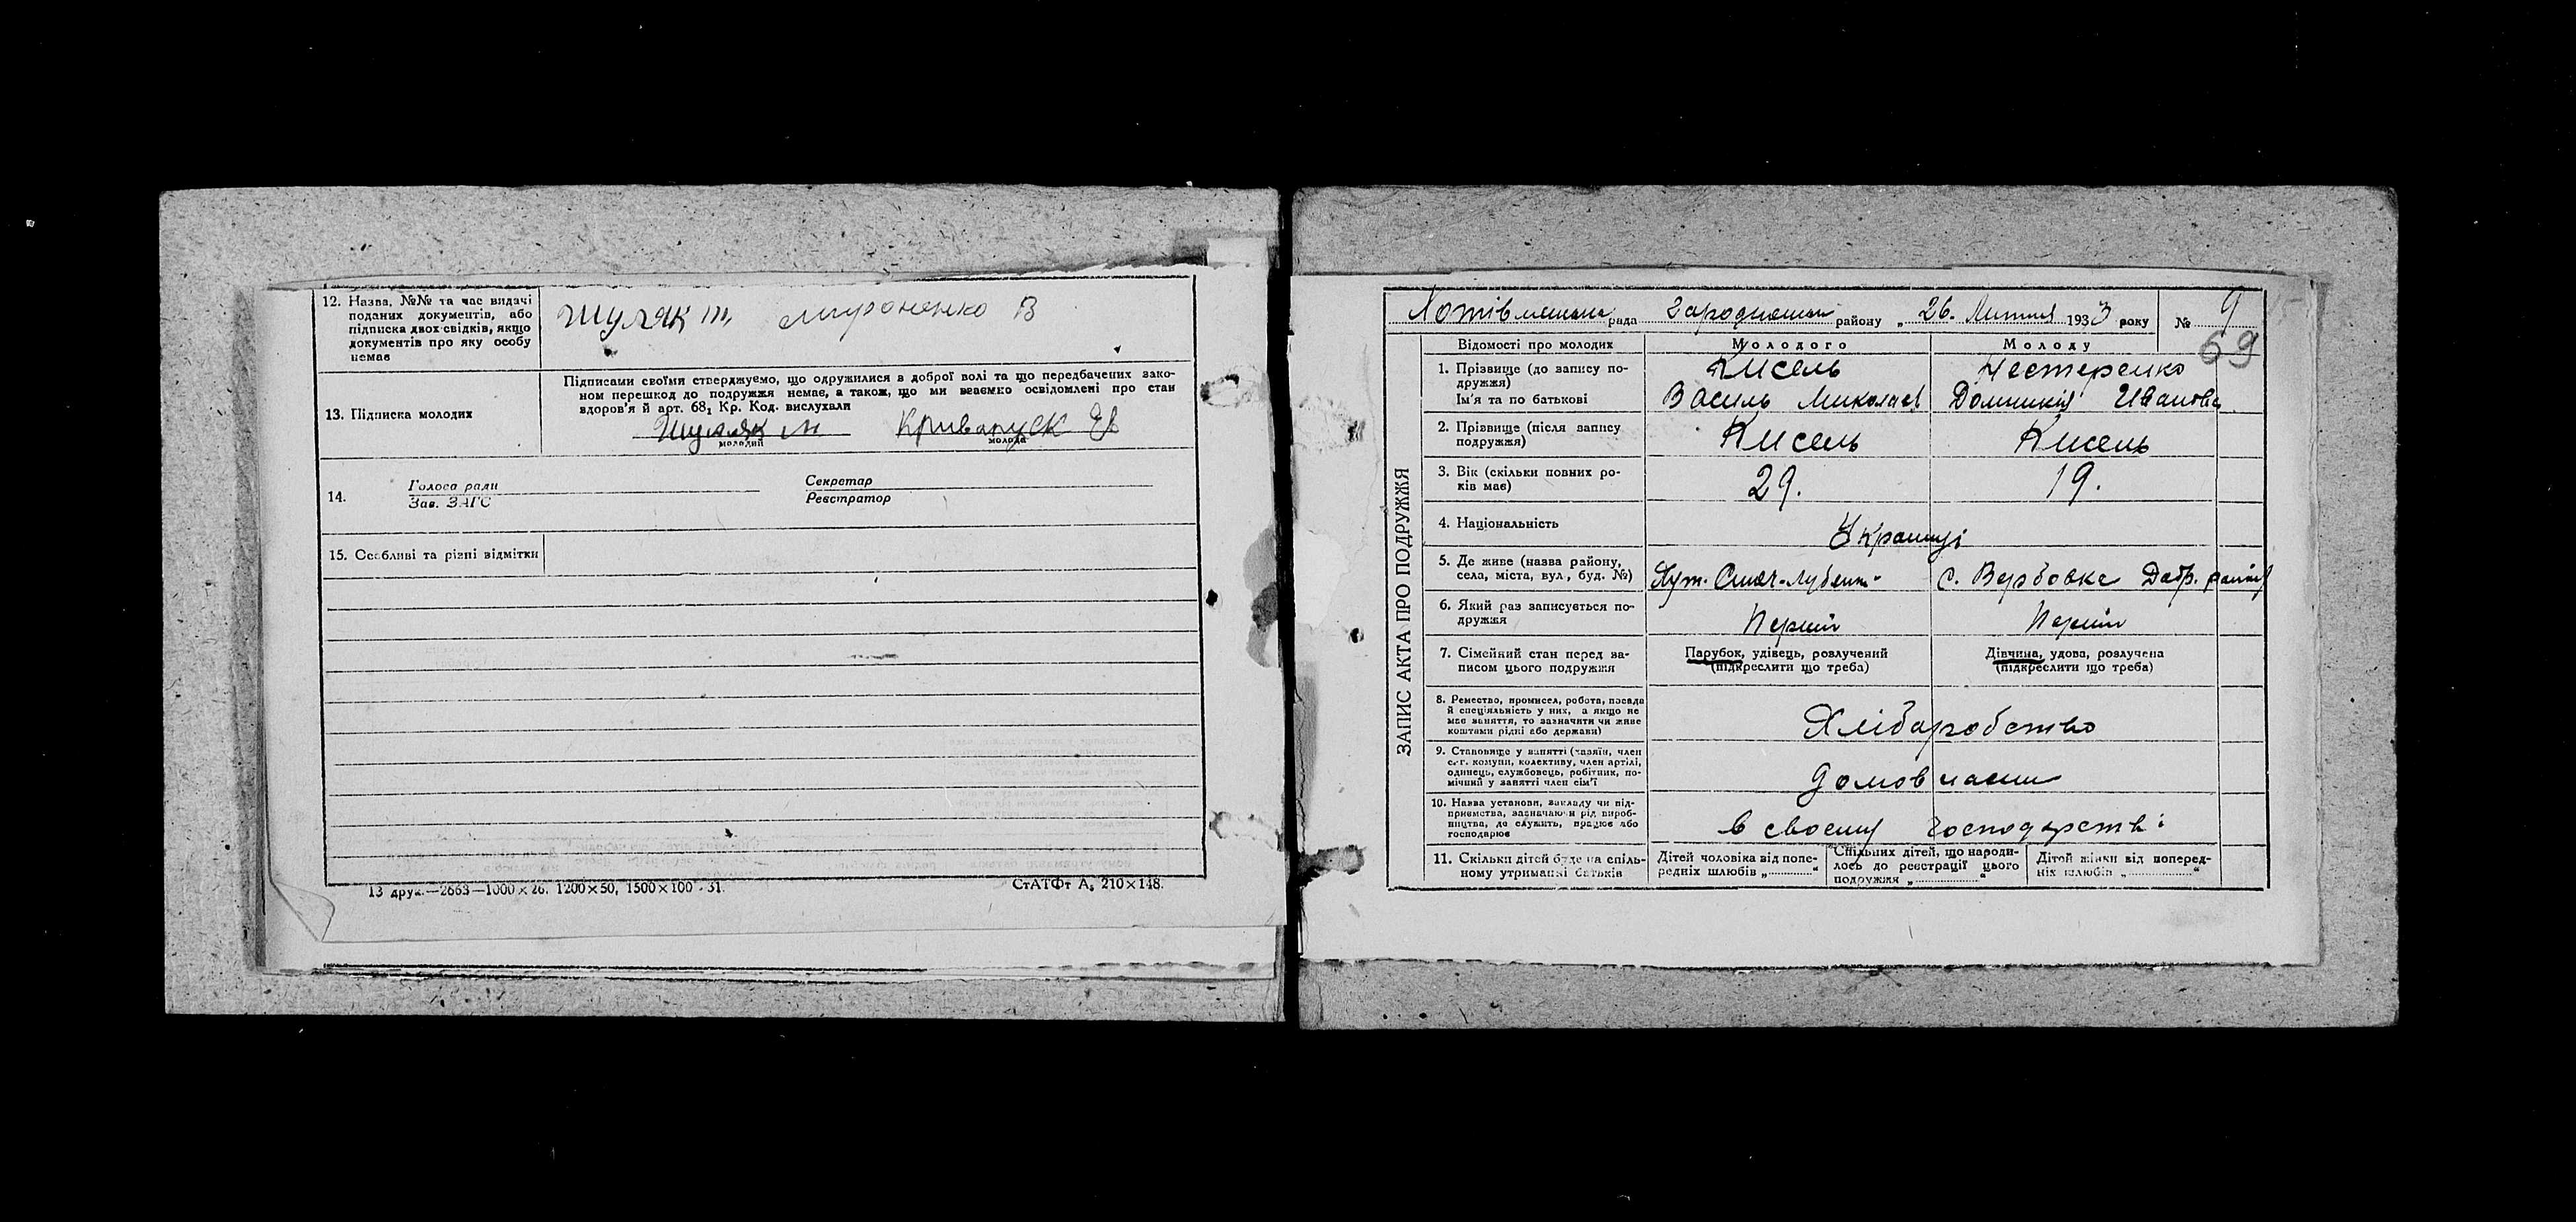 12. Назва, №№ та час видачі
поданих документів, або
підписка двох свідків, якщо
документів про яку особу
немає
Шуляк т, Мироненко В
13. Підписка молодих
Підписами своїми стверджуємо, що одружилися в доброї волі та що передбачених зако-
ном перешкод до подружжя немає, а також, що ми взаємко освідомлені про стан
здоров'я й арт. 68₁ Кр. Код. вислухали
Шуляк м Кривапуск Єв
молодий молода
14. Голова ради Секретар
Зав. ЗАГС Реєстратор
15. Особливі та різні відмітки
13 друк.—2663—1000×26, 1200×50, 1500×100 . 31.
СтАТФт А₅ 210×148.
рада району „ 26. 1933 року № 9
69
ЗАПИС АКТА ПРО ПОДРУЖЖЯ
Відомості про молодих Молодого Молоду
1. Прізвище (до запису по-
дружжя)
Ім'я та по батькові
Кисель Нестеренко
Василь Миколаєв Домникія Иванова
2. Прізвище (після запису
подружжя)
Кисель Кисель
3. Вік (скільки повних ро-
ків має)
29. 19.
4. Національність
Украинці
5. Де живе (назва району,
села, міста, вул., буд. №)
Хут. с. Вербовка район
6. Який раз записується по-
дружжя
Перший Перший
7. Сімейний стан перед за-
писом цього подружжя
Парубок, удівець, розлучений
(підкреслити що треба)
Дівчина, удова, розлучена
(підкреслити що треба)
8. Ремество, промисел, робота, посада
й спеціяльність у них, а якщо не
має заняття, то зазначити чи живе
коштами рідні або держави)
Хліборобство
9. Становище у занятті (хазяїн, член
с.-г. комуни, колективу, член артілі,
одинець, службовець, робітник, по-
мічний у занятті член сім'ї
10. Назва установи, закладу чи під-
приємства, зазначаючи рід вироб-
ництва, де служить, працює або
господарює
в своему господарстві
11. Скільки дітей буде на спіль-
ному утриманні батьків
Дітей чоловіка від попе-
редніх шлюбів „..........“
Спільних дітей, що народи-
лось до реєстрації цього
подружжя „..........“
Дітей жінки від поперед-
ніх шлюбів „..........“